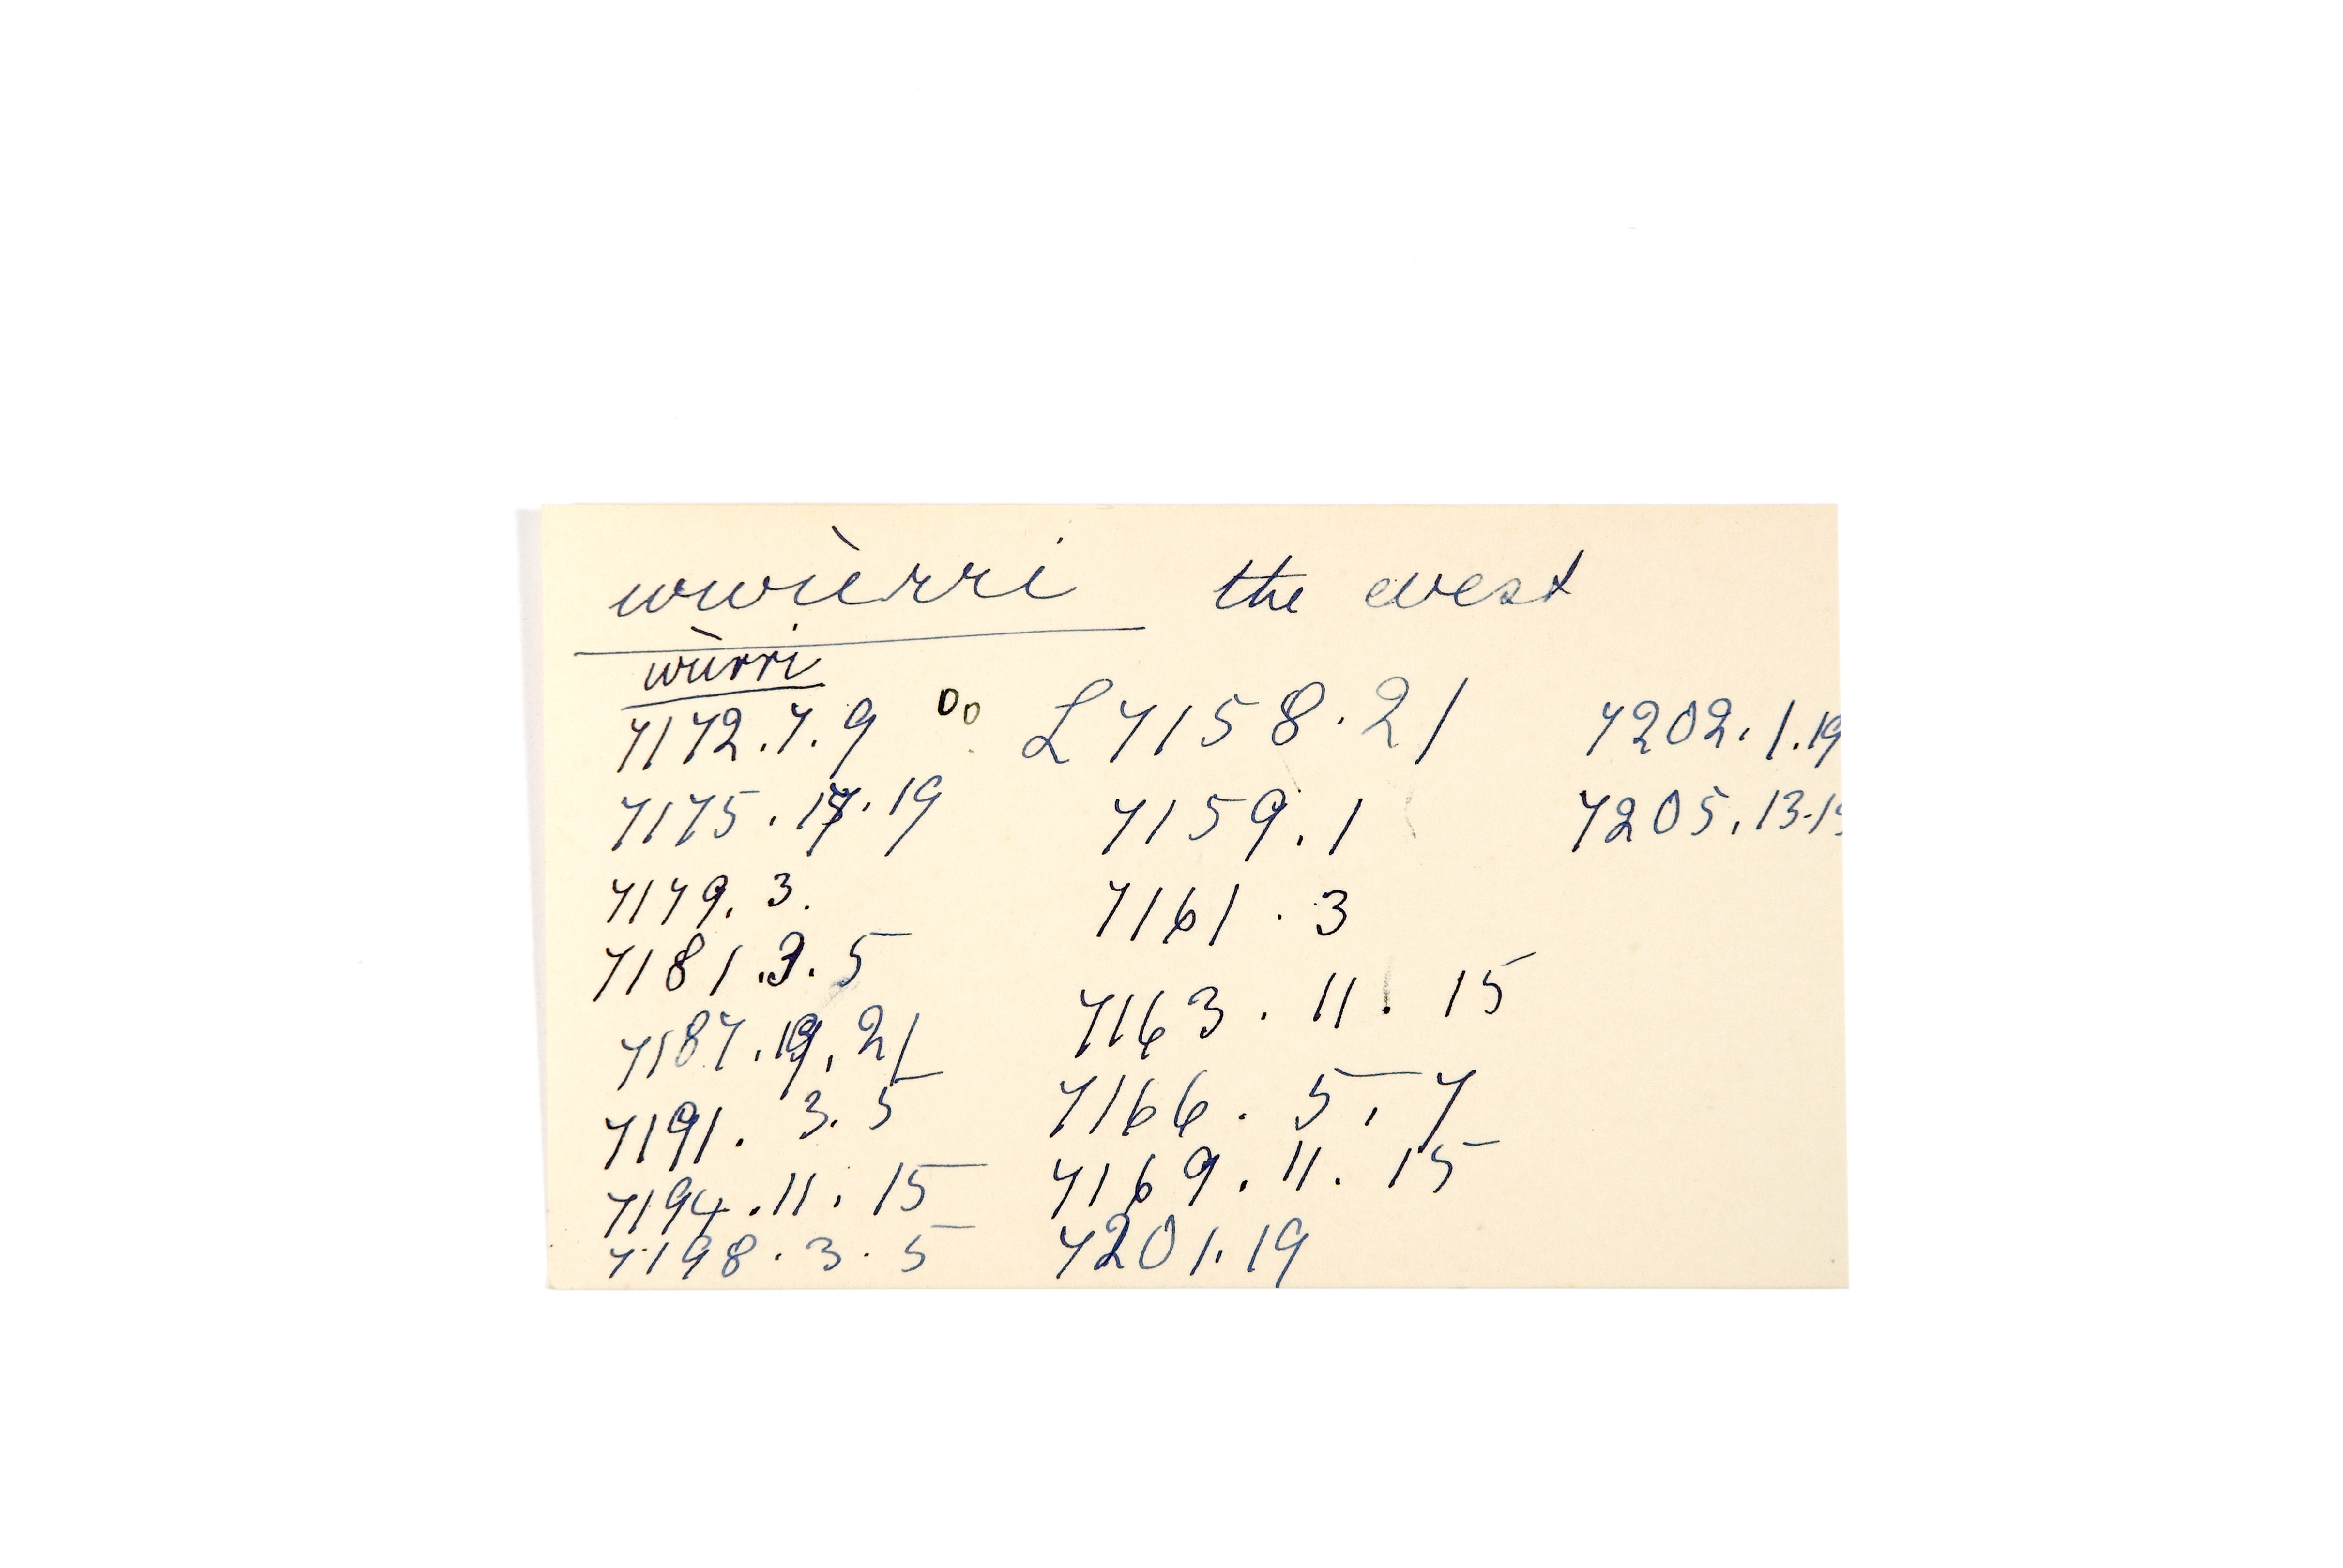 wwùrri the west
wùrri
7172.7.9
7175.17.19
7179.3.
7181.3.5
7187.19.21
7191.3.5
7194.11.15
7198.3.5
L 7158.21
7159.1
7161.3
7163.11.15
7166.5.7
7169.11.15
7201.19
7202.1.19
7205.13.